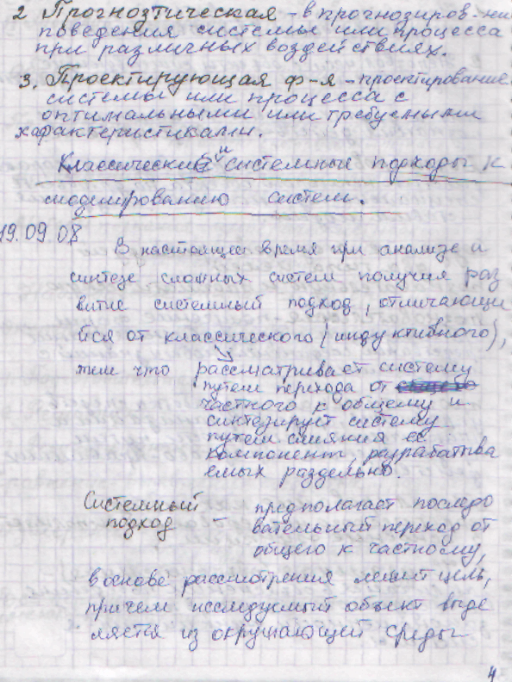 2 Прогнозтическая - в прогнозиров-нии
поведения системы или процесса
при различных воздействиях.
3. Проектирующая ф-я - проектирование
системы или процесса с
оптимальными или требуемыми
характеристиками.
Классический и системные подходы к
моделированию систем.
19.09.08
В настоящее время при анализе и
синтезе сложных систем получил раз
витие системный подход, отличающи
йся от классического (индуктивного),
тем что рассматривает систему
путем перехода от
частного к общему и
синтезирует систему
путем слияния ее
компонент, разрабатыва
емых раздельно.
Системный подход - предполагает последо
вательный переход от
общего к частному,
в основе рассмотрения лежит цель,
причем исследуемый объект выде
ляется из окружающей среды
4